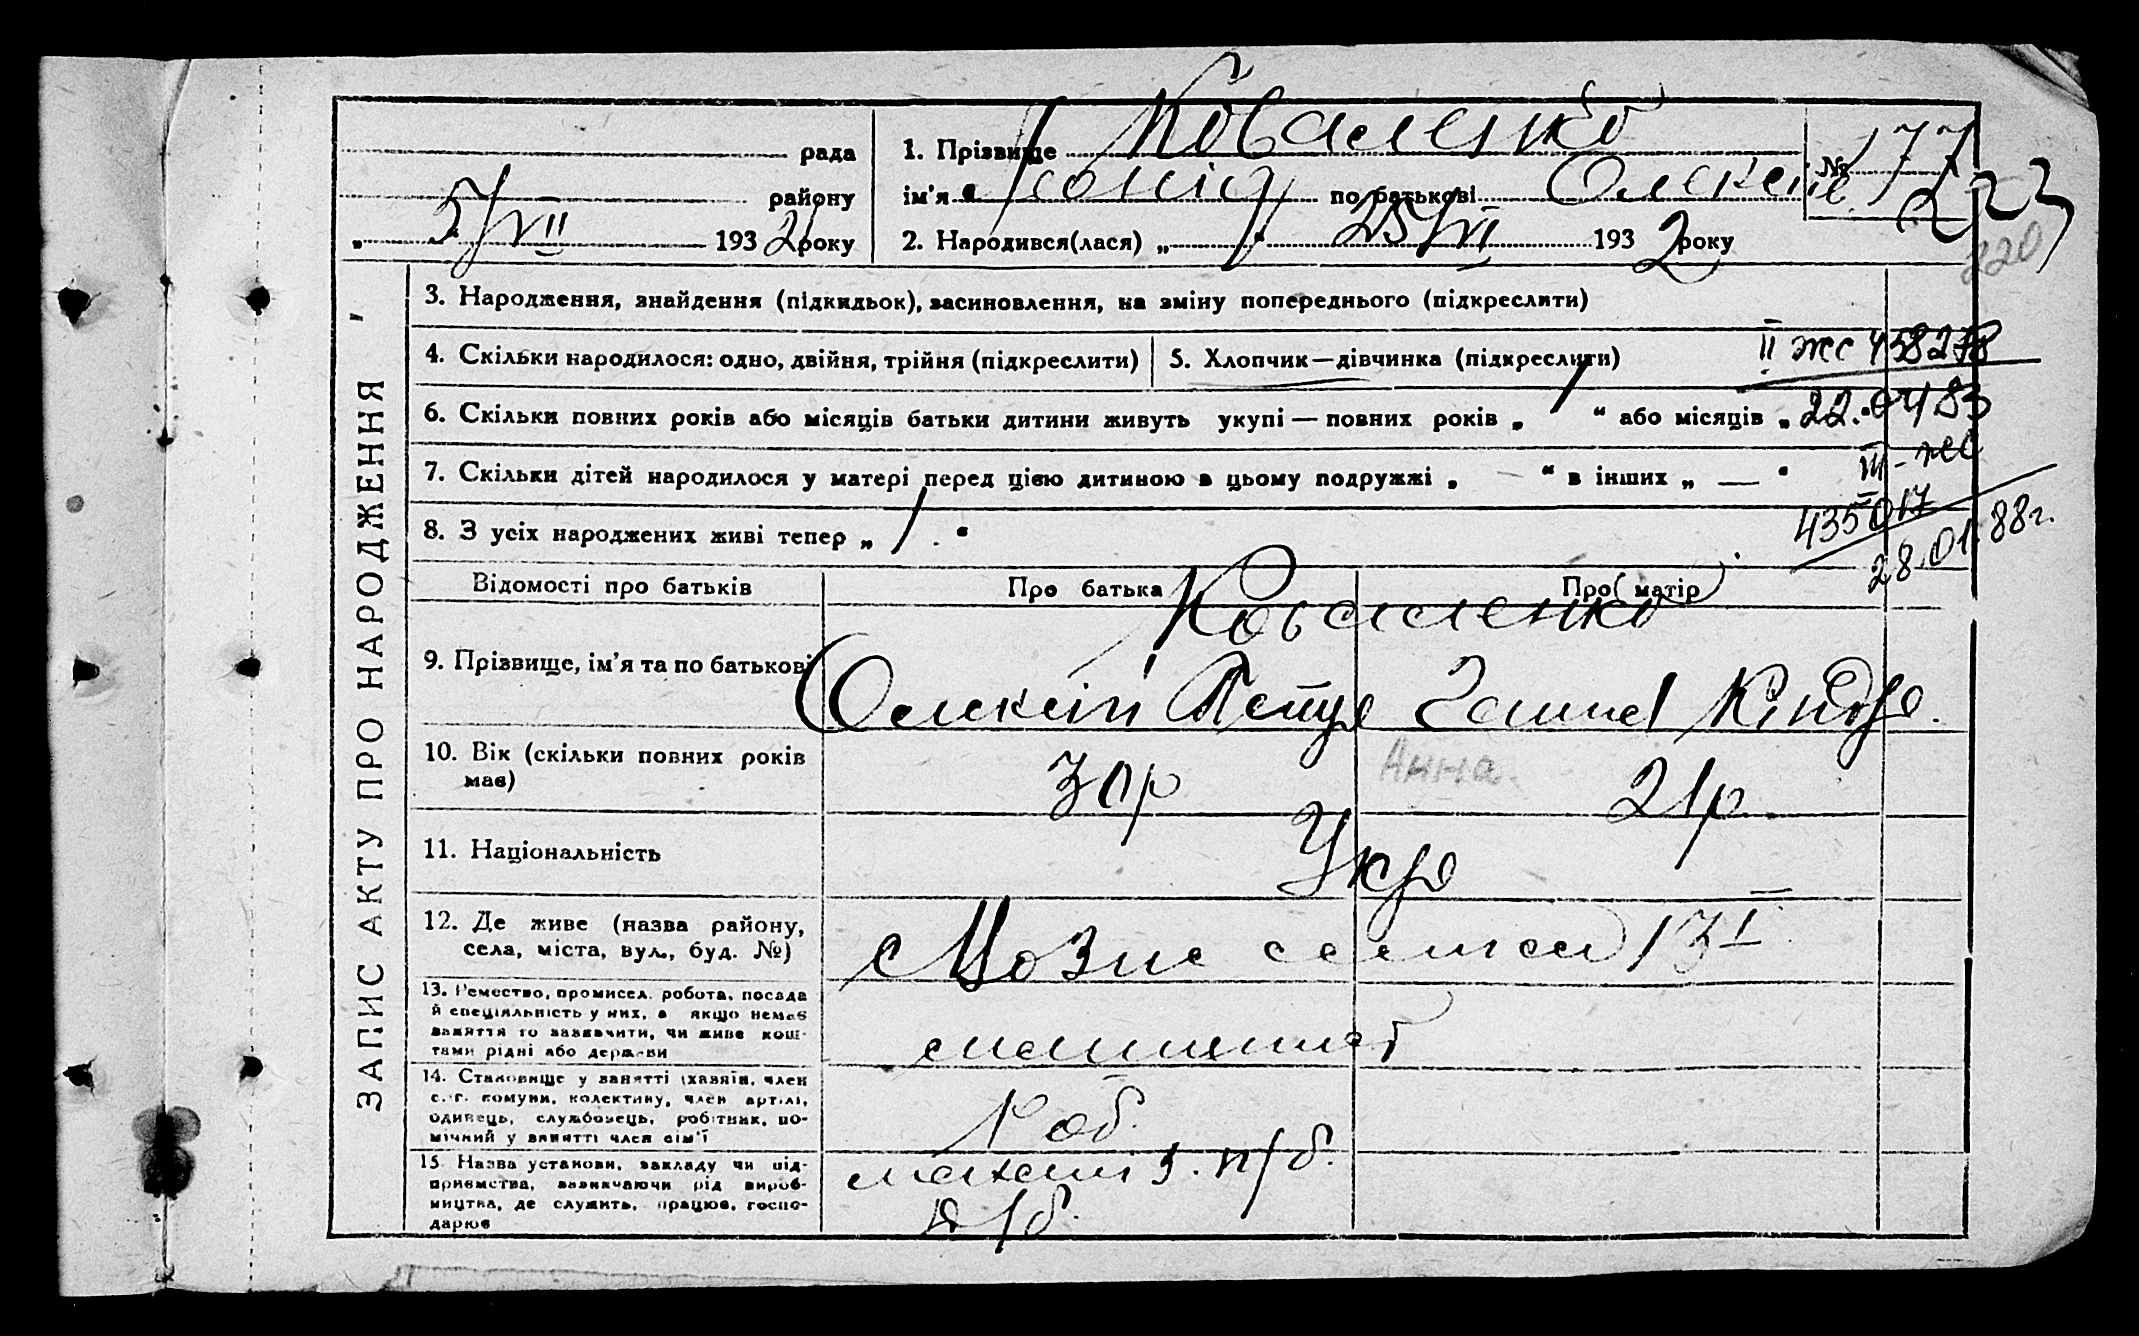 рада
району
5/VII 1932 року
1. Прізвище Коваленко
ім'я Леонід по батькові Олексіїв
2. Народився(лася) „ “ 25/VI 1932 року
№ 177
223
220
ЗАПИС АКТУ ПРО НАРОДЖЕННЯ
3. Народження, знайдення (підкидьок), засиновлення, на зміну попереднього (підкреслити)
4. Скільки народилося: одно, двійня, трійня (підкреслити)
5. Хлопчик — дівчинка (підкреслити)
II жс 458278
6. Скільки повних років або місяців батьки дитини живуть укупі — повних років „ 1 “ або місяців „
22.0483
7. Скільки дітей народилося у матері перед цією дитиною в цьому подружжі „ — “ в інших „ — “
III-жс
435017
28.01.88г.
8. З усіх народжених живі тепер „ 1 . “
Відомості про батьків
Про батька
Про матір
9. Прізвище, ім'я та по батькові
Коваленко
Олексій Петр Ганна Кіндр.
10. Вік (скільки повних років має)
30р
Анна.
21р
11. Національність
Укр
12. Де живе (назва району, села, міста, вул., буд. №)
13. Ремество, промисел, робота, посада
й спеціяльність у них, а якщо немає
заняття то зазначити, чи живе кош-
тами рідні або держави
машиніст
14. Становище у занятті (хазяїн, член
с.-г. комуни, колективу, член артілі,
одинець, службовець, робітник, по-
мічний у занятті член сім'ї
Роб.
15. Назва установи, закладу чи під-
приємства, зазначаючи рід вироб-
ництва, де служить, працює, госпо-
дарює